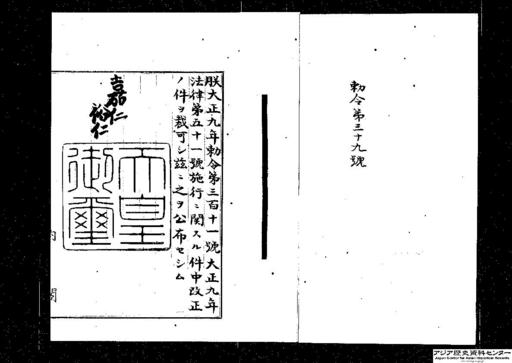 勅令第三十九號
朕大正九年勅令第三百十一號大正九年
法律第五十一號施行ニ關スル件中改正
ノ件ヲ裁可シ茲ニ之ヲ公布セシム
嘉仁
裕仁
天皇
御璽
内閣
アジア歴史資料センター
Japan Center for Asian Historical Records